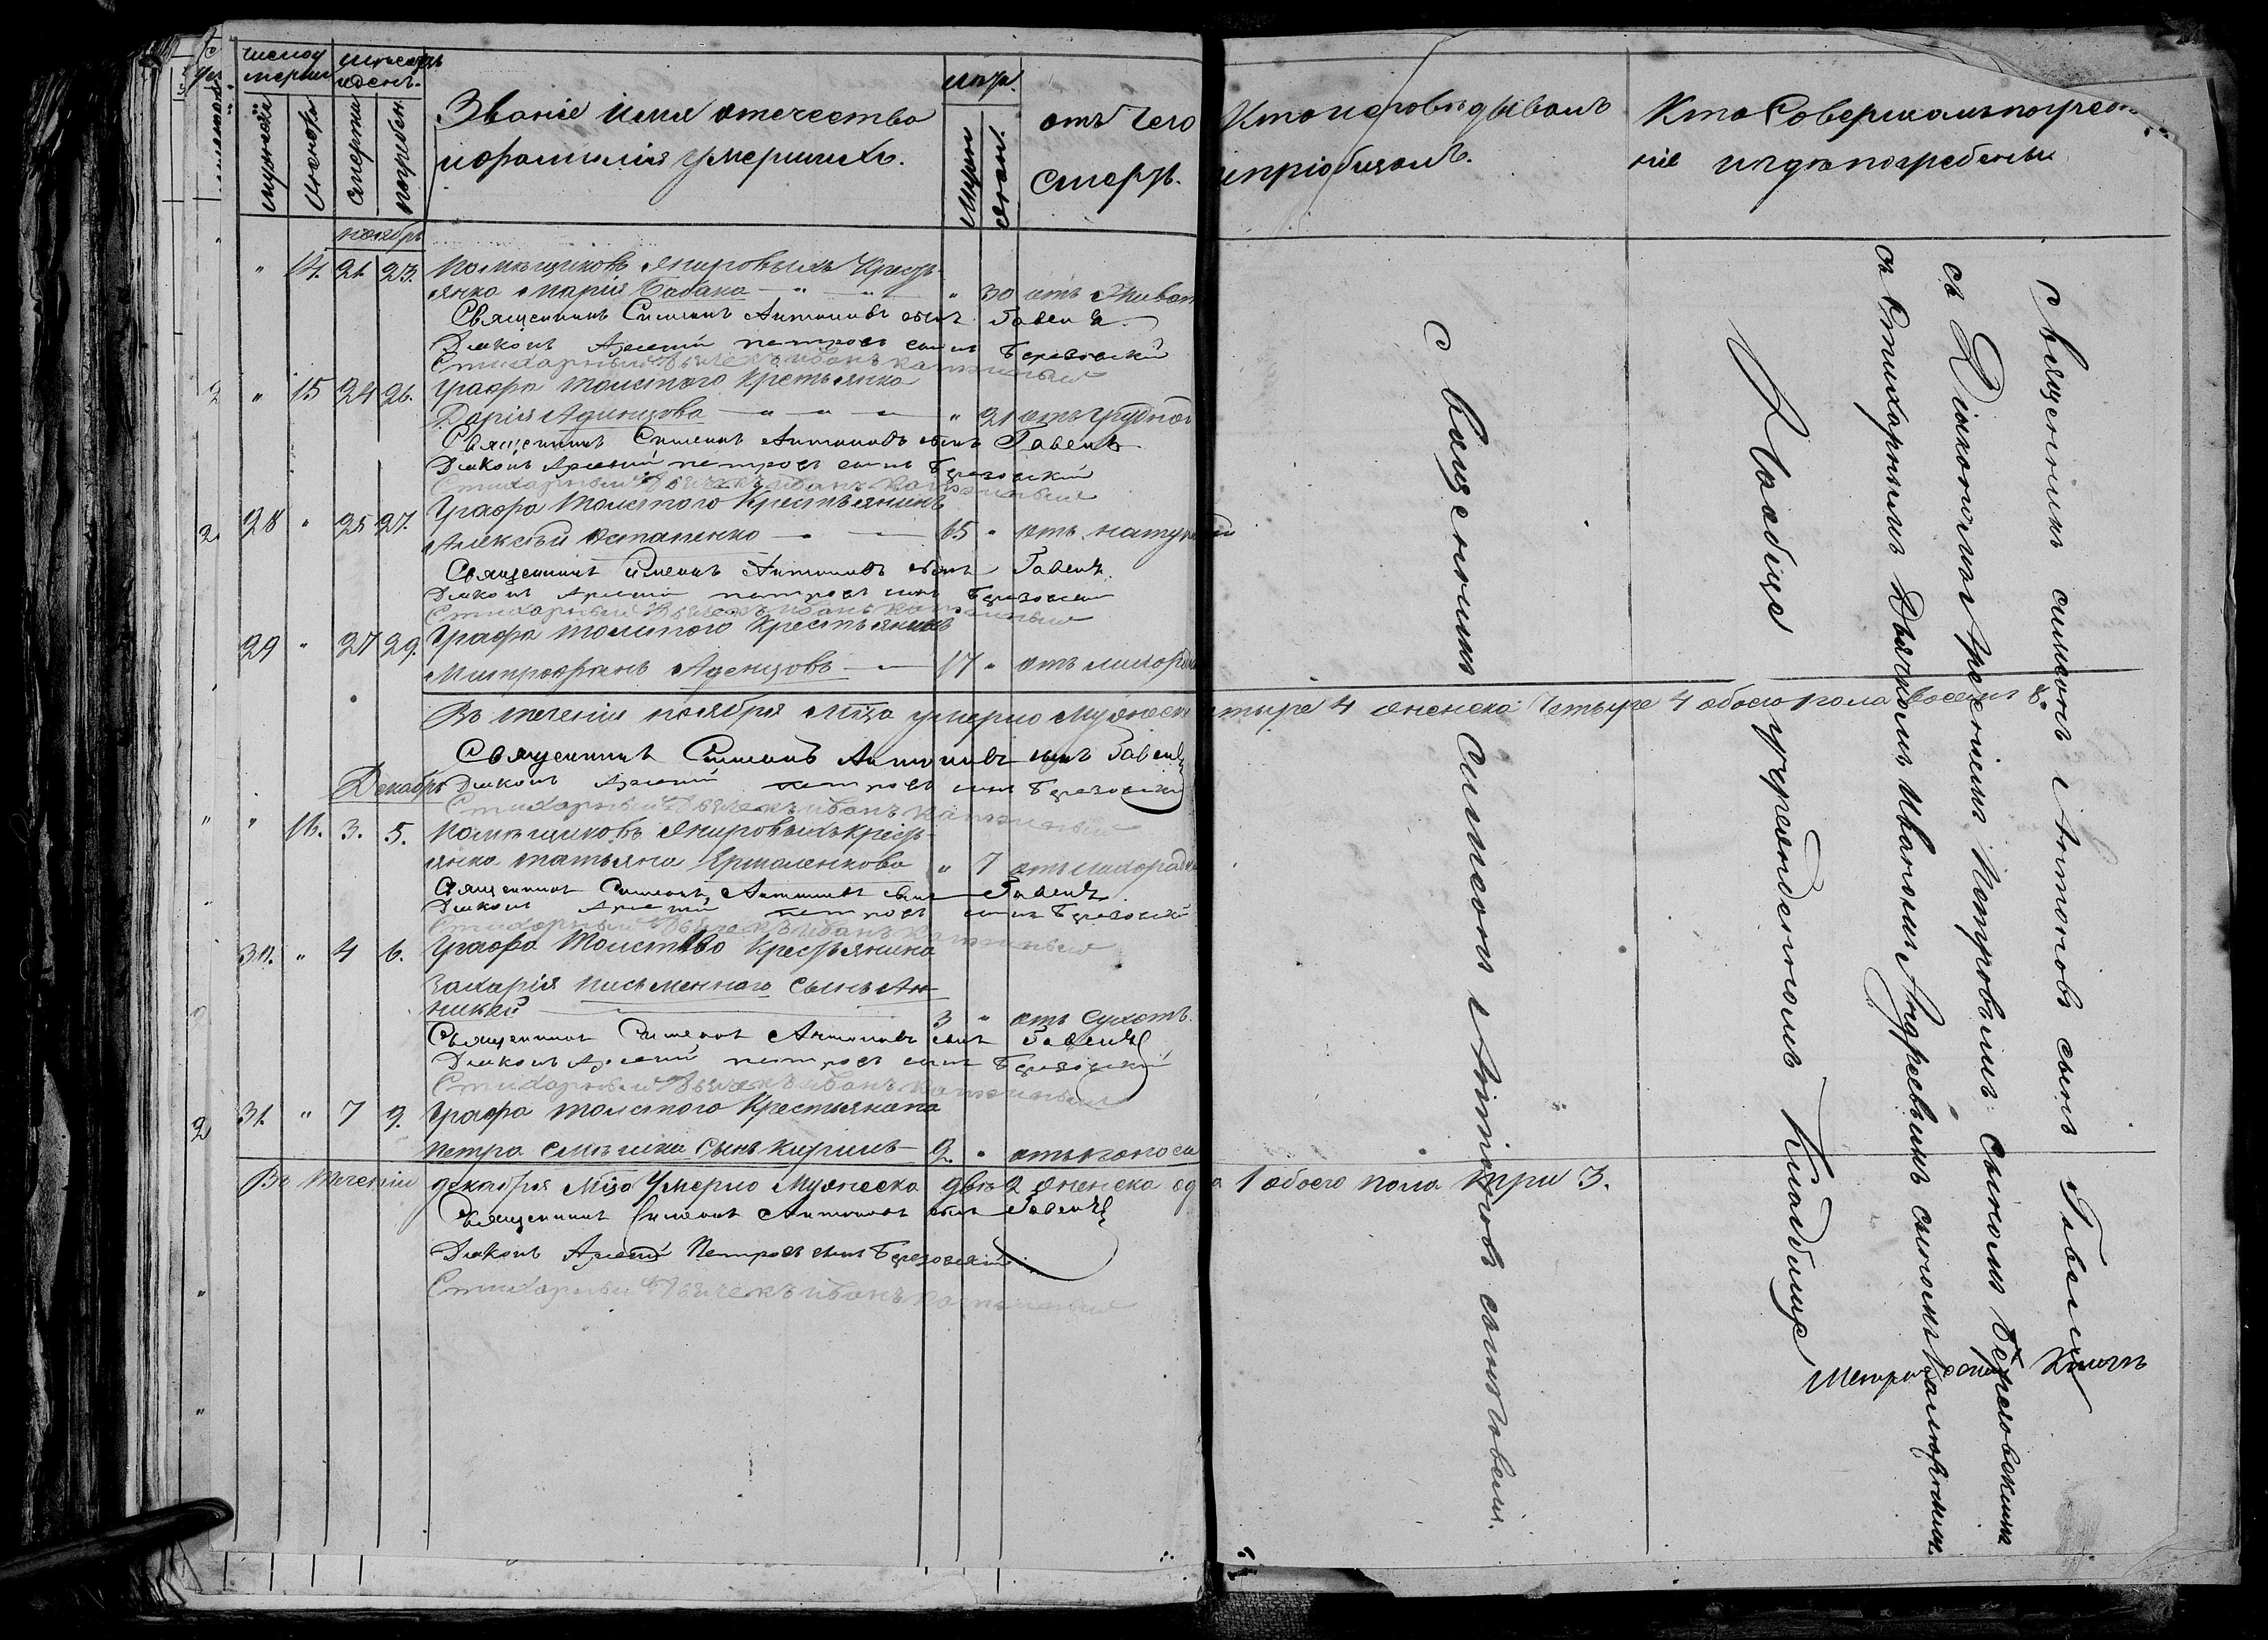 Счетъ умершихъ
Мѣсяцъ и день
мужеска
женска
смерти
погребен.
Званіе имя отечество
и фамилія умершихъ.
Лѣта
Мужеск.
женск.
отъ чего
смерть.
Кто исповѣдывалъ
и пріобщалъ.
Кто Совершалъ погребе-
ніе и гдѣ погребены
ноябрь
" 14. 21. 23. Помѣщиковъ Яхировыхъ Кресть-
янка Марія Бабака " 30 отъ живот
Священникъ Симеонъ Антоновъ сынъ Говенъ
Діаконъ Арсеній петровъ сынъ Березовскій
Стихарный Дьячекъ Иванъ
" 15 24 26. Графа толстого Крестьянка
Дарія Аденцова " 21 отъ грудной
Священникъ Симеонъ Антоновъ сынъ Говенъ
Діаконъ Арсеній петровъ сынъ Березовскій
Стихарный Дьячекъ Иванъ
28 " 25 27. Графа Толстого Крестьянинъ
Алексѣй Остапенко 65 " отъ натур
Священникъ Симеонъ Антоновъ сынъ Говенъ
Діаконъ Арсеній петровъ сынъ Березовскій
Стихарный Дьячекъ Иванъ
29 " 27 29. Графа толстого Крестьянинъ
Митрофанъ Аденцовъ 17 " отъ лихорад
Въ теченіи ноября мца умерло мужеск четыре 4 женска четыре 4 обоего пола восемь 8.
Священникъ Симеонъ Антоновъ сынъ Говенъ
Декабрь
Діаконъ Арсеній петровъ сынъ Березовскій
Стихарный Дьячекъ Иванъ
" 16. 3. 5. Помѣщиковъ Яхировыхъ кресть-
янка татьяна Ермаленкова " 7 отъ лихорад
Священникъ Симеонъ Антоновъ сынъ Говенъ
Діаконъ Арсеній петровъ сынъ Березовскій
Стихарный Дьячекъ Иванъ
30. " 4 6. Графа Толстого Крестьянина
Захарія письменного Сынъ Ан-
никей 3 " отъ сухотъ
Священникъ Симеонъ Антоновъ сынъ Говенъ
Діаконъ Арсеній петровъ сынъ Березовскій
Стихарный Дьячекъ Иванъ
31. " 7 9. Графа толстого Крестьянина
петра Сынъ Кирилъ 2. " отъ поноса
Въ теченіи декабря Мца Умерло Мужеска двѣ 2 женска одна 1 обоего пола три 3.
Священникъ Симеонъ Антоновъ сынъ Говенъ
Діаконъ Арсеній Петровъ сынъ Березовскій
Стихарный Дьячекъ Иванъ
Священникъ Симеонъ Антоновъ сынъ Говенъ.
Священникъ симеонъ Антоновъ сынъ Говенъ
съ Діакономъ Арсеніемъ Петровымъ сыномъ Березовскимъ
съ Стихарнымъ Дьячкомъ Иваномъ Андреевымъ сыномъ
На обще учрежденномъ Кладбище
книгъ